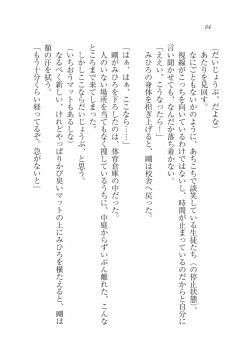 64
（だいじょうぶ、だよな）
あたりを見回す。
なにごともないかのように、あちこちで談笑している生徒たち（の停止状態）。
視線がこっちを向いているわけではないし、時間が止まっているのだからと自分に
言い聞かせても、なんだか落ち着かない。
「ええい、こうなったら！」
みひろの身体を担ぎ上げると、剛は校舎へ戻った。
「はぁ、はぁ、ここなら……」
剛がみひろを下ろしたのは、体育倉庫の中だった。
人のいない場所を当てもなく捜しているうちに、中庭からずいぶん離れた、こんな
ところまで来てしまった。
（ここならだいじょうぶ、と思う。
いちおうマットもあるし）
なるべく新しい、けれどやっぱりかび臭いマットの上にみひろを横たえると、剛は
額の汗を拭う。
「もう十分くらい経ってるぞ。急がないと」